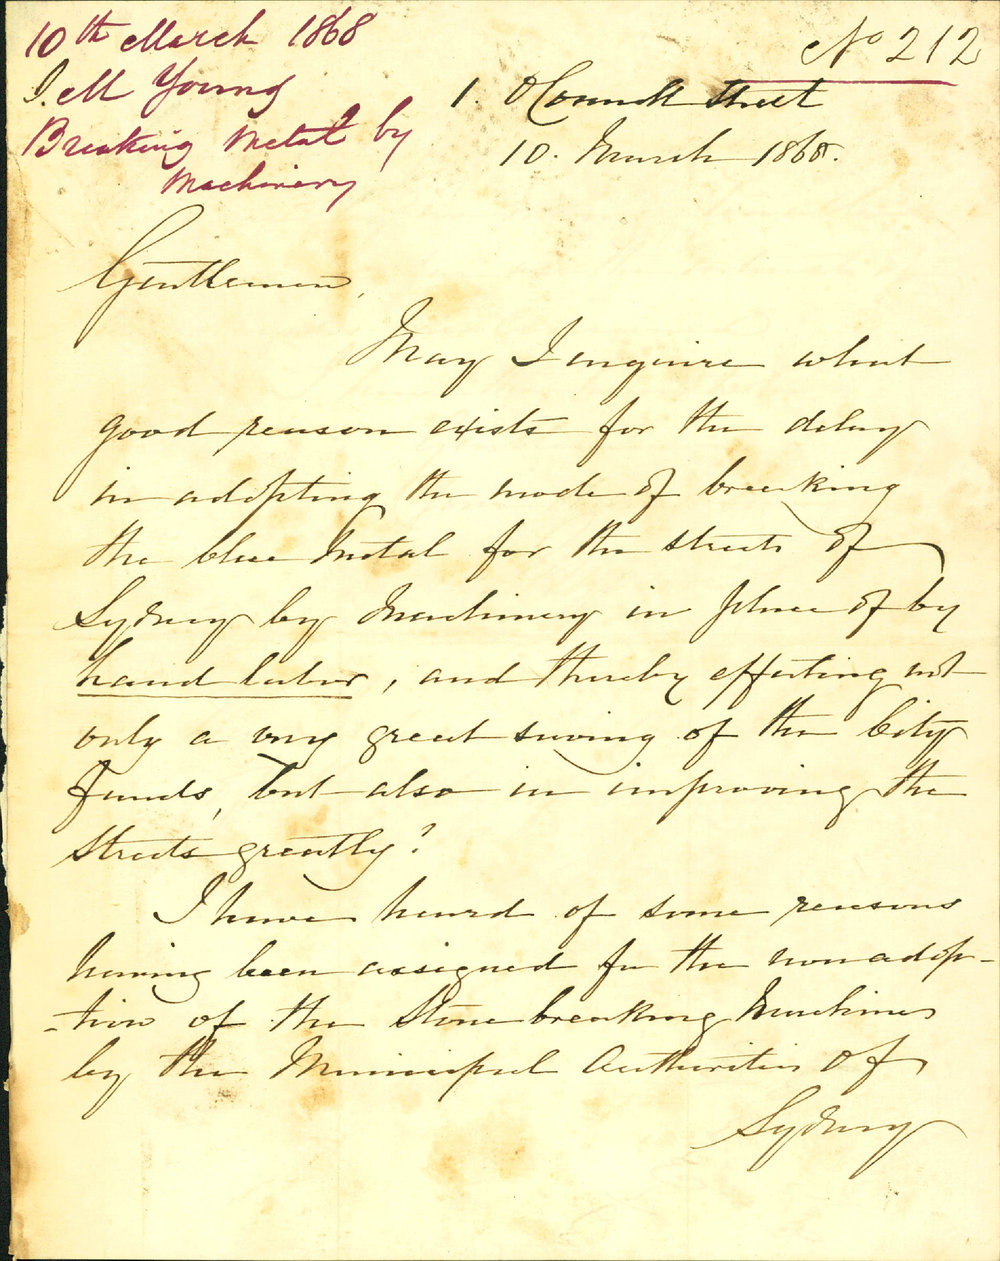 10th March 1868
J. M Young
Breaking Metal by
Machinery
No 212
1. O'Connell Street
10. March 1868.
Gentlemen,
May I enquire what
good reason exists for the delay
in adopting the mode of breaking
the blue Metal for the streets of
Sydney by Machinery in place of by
hand labor, and thereby effecting not
only a very great saving of the City
Funds, but also in improving the
Streets greatly?
I have heard of some reasons
having been assigned for the non adop-
-tion of the Stone breaking Machines
by the Municipal Authorities of
Sydney